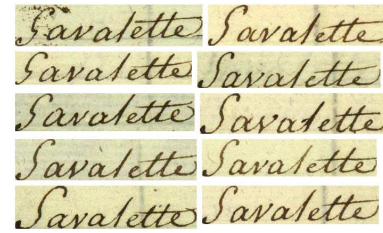 Savalette Savalette
Savalette Savalette
Savalette Savalette
Savalette Savalette
Savalette Savalette